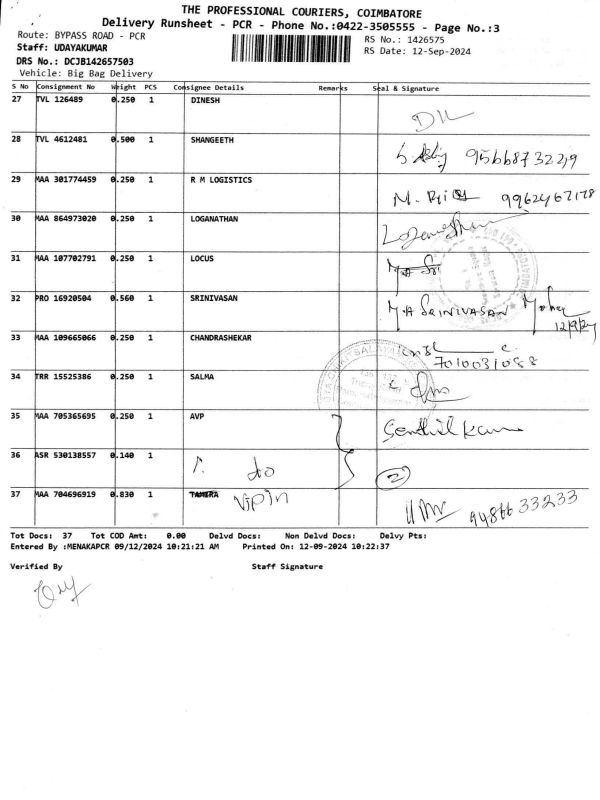 THE PROFESSIONAL COURIERS, COIMBATORE
Delivery Runsheet - PCR - Phone No.:0422-3505555 - Page No.:3
Route: BYPASS ROAD - PCR
RS No.: 1426575
Staff: UDAYAKUMAR
RS Date: 12-Sep-2024
DRS No.: DCJB142657503
Vehicle: Big Bag Delivery
S No Consignment No Weight PCS Consignee Details Remarks Seal & Signature
27 TVL 126489 0.250 1 DINESH
28 TVL 4612481 0.500 1 SHANGEETH
29 MAA 301774459 0.250 1 R M LOGISTICS
30 MAA 864973020 0.250 1 LOGANATHAN
31 MAA 107702791 0.250 1 LOCUS
32 PRO 16920504 0.560 1 SRINIVASAN M.A SRINIVASAN
12/9/24
33 MAA 109665066 0.250 1 CHANDRASHEKAR
7010031088
34 TRR 15525386 0.250 1 SALMA
35 MAA 705365695 0.250 1 AVP Senthil Kumar
36 ASR 530138557 0.140 1 do 2
37 MAA 704696919 0.830 1 Vipin 9486633233
Tot Docs: 37 Tot COD Amt: 0.00 Delvd Docs: Non Delvd Docs: Delvy Pts:
Entered By :MENAKAPCR 09/12/2024 10:21:21 AM Printed On: 12-09-2024 10:22:37
Verified By Staff Signature